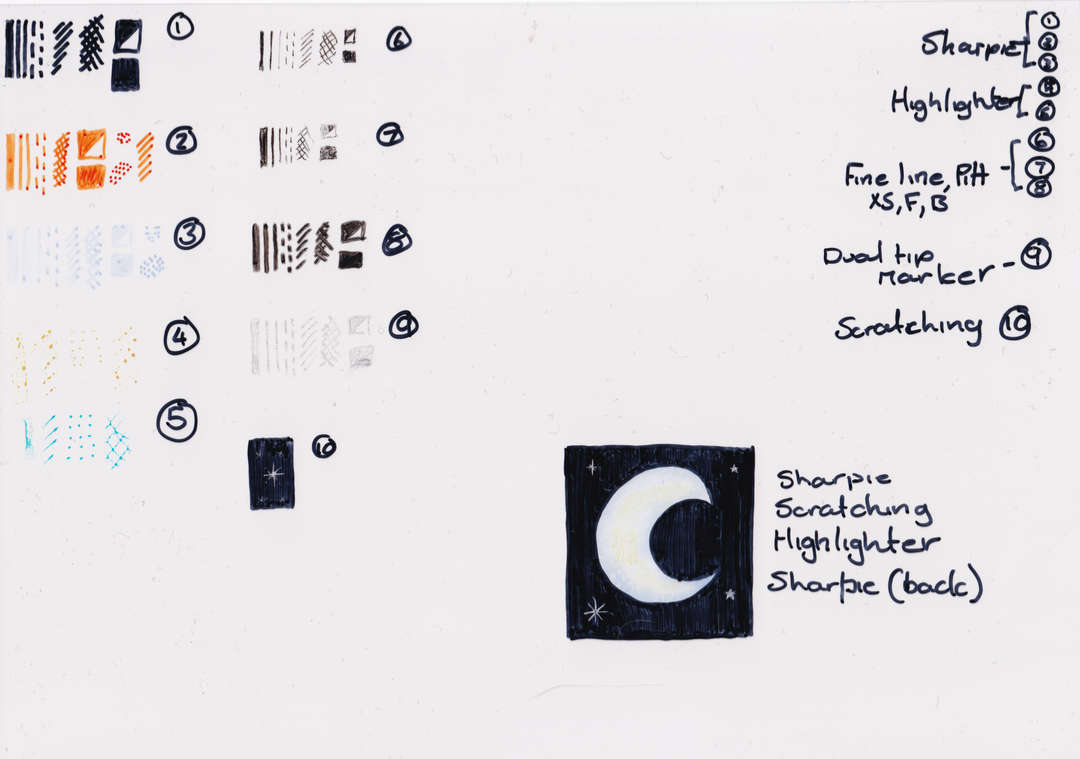 1
2
3
4
5
6
7
8
9
10
Sharpie 1
2
3
Highlighter 4
5
Fine line, Pitt
XS, F, B
6
7
8
Dual tip
Marker - 9
Scratching 10
Sharpie
Scratching
Highlighter
Sharpie (back)